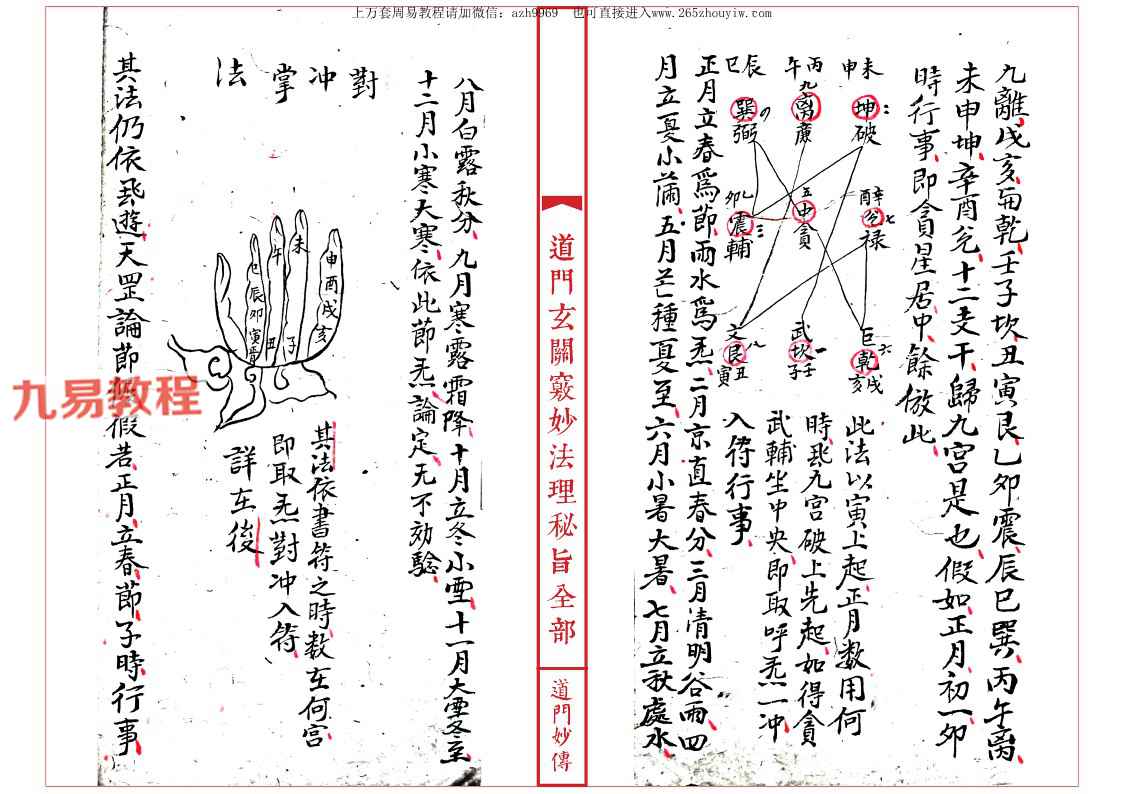 上万套周易教程请加微信：azh9969 也可直接进入www.265zhouyiw.com
九離戌亥面乾壬子坎丑寅艮乙卯震辰巳巽丙午离
未申坤辛酉兊十二支干歸九宮是也假如正月初一卯
時行事即貪星居中餘倣此
未申
丙午
辰巳
坤破
九离廉
巽弼
辛酉
兊七禄
五中貪
乙卯
震三輔
巨六乾戌亥
武坎一壬子
文艮八丑寅
此法以寅上起正月数用何
時飛九宮破上先起如得貪
武輔坐中央即取呼炁一冲
入符行事
正月立春為節雨水為炁二月京直春分三月清明谷雨四
月立夏小满五月芒種夏至六月小暑大暑七月立秋處水
道門玄關竅妙法理秘旨全部
道門妙傳
八月白露秋分九月寒露霜降十月立冬小雪十一月大雪冬至
十二月小寒大寒依此節炁論定无不効驗
對冲掌法
未
午
申酉戌亥
巳辰卯寅
丑
子
其法依書符之時数在何宮
即取炁對冲入符
詳在後
其法仍依飛遊天罡論節假若正月立春節子時行事
九易教程